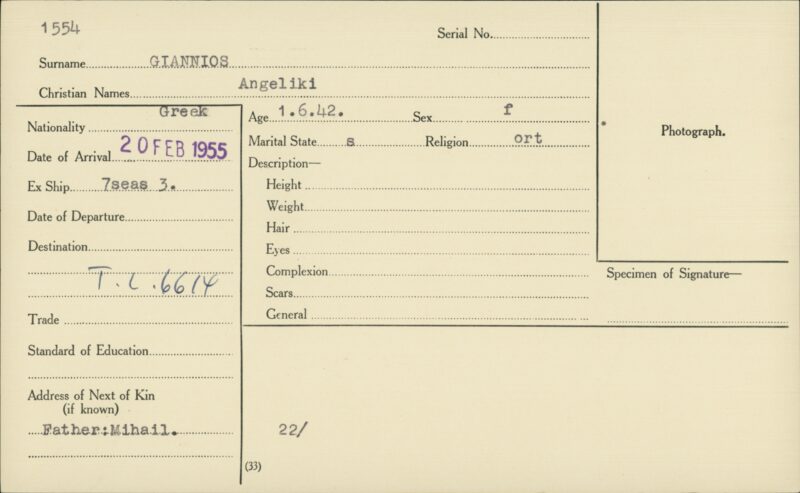 1554
Serial No.
Surname GIANNIOS
Christian Names Angeliki
Nationality Greek
Date of Arrival 20 FEB 1955
Ex Ship 7seas 3.
Date of Departure
Destination
T.L.6614
Trade
Standard of Education
Address of Next of Kin
(if known)
Father:Mihail.
Age 1.6.42. Sex f
Marital State s Religion ort
Description—
Height
Weight
Hair
Eyes
Complexion
Scars
General
22/
(33)
Photograph.
Specimen of Signature—